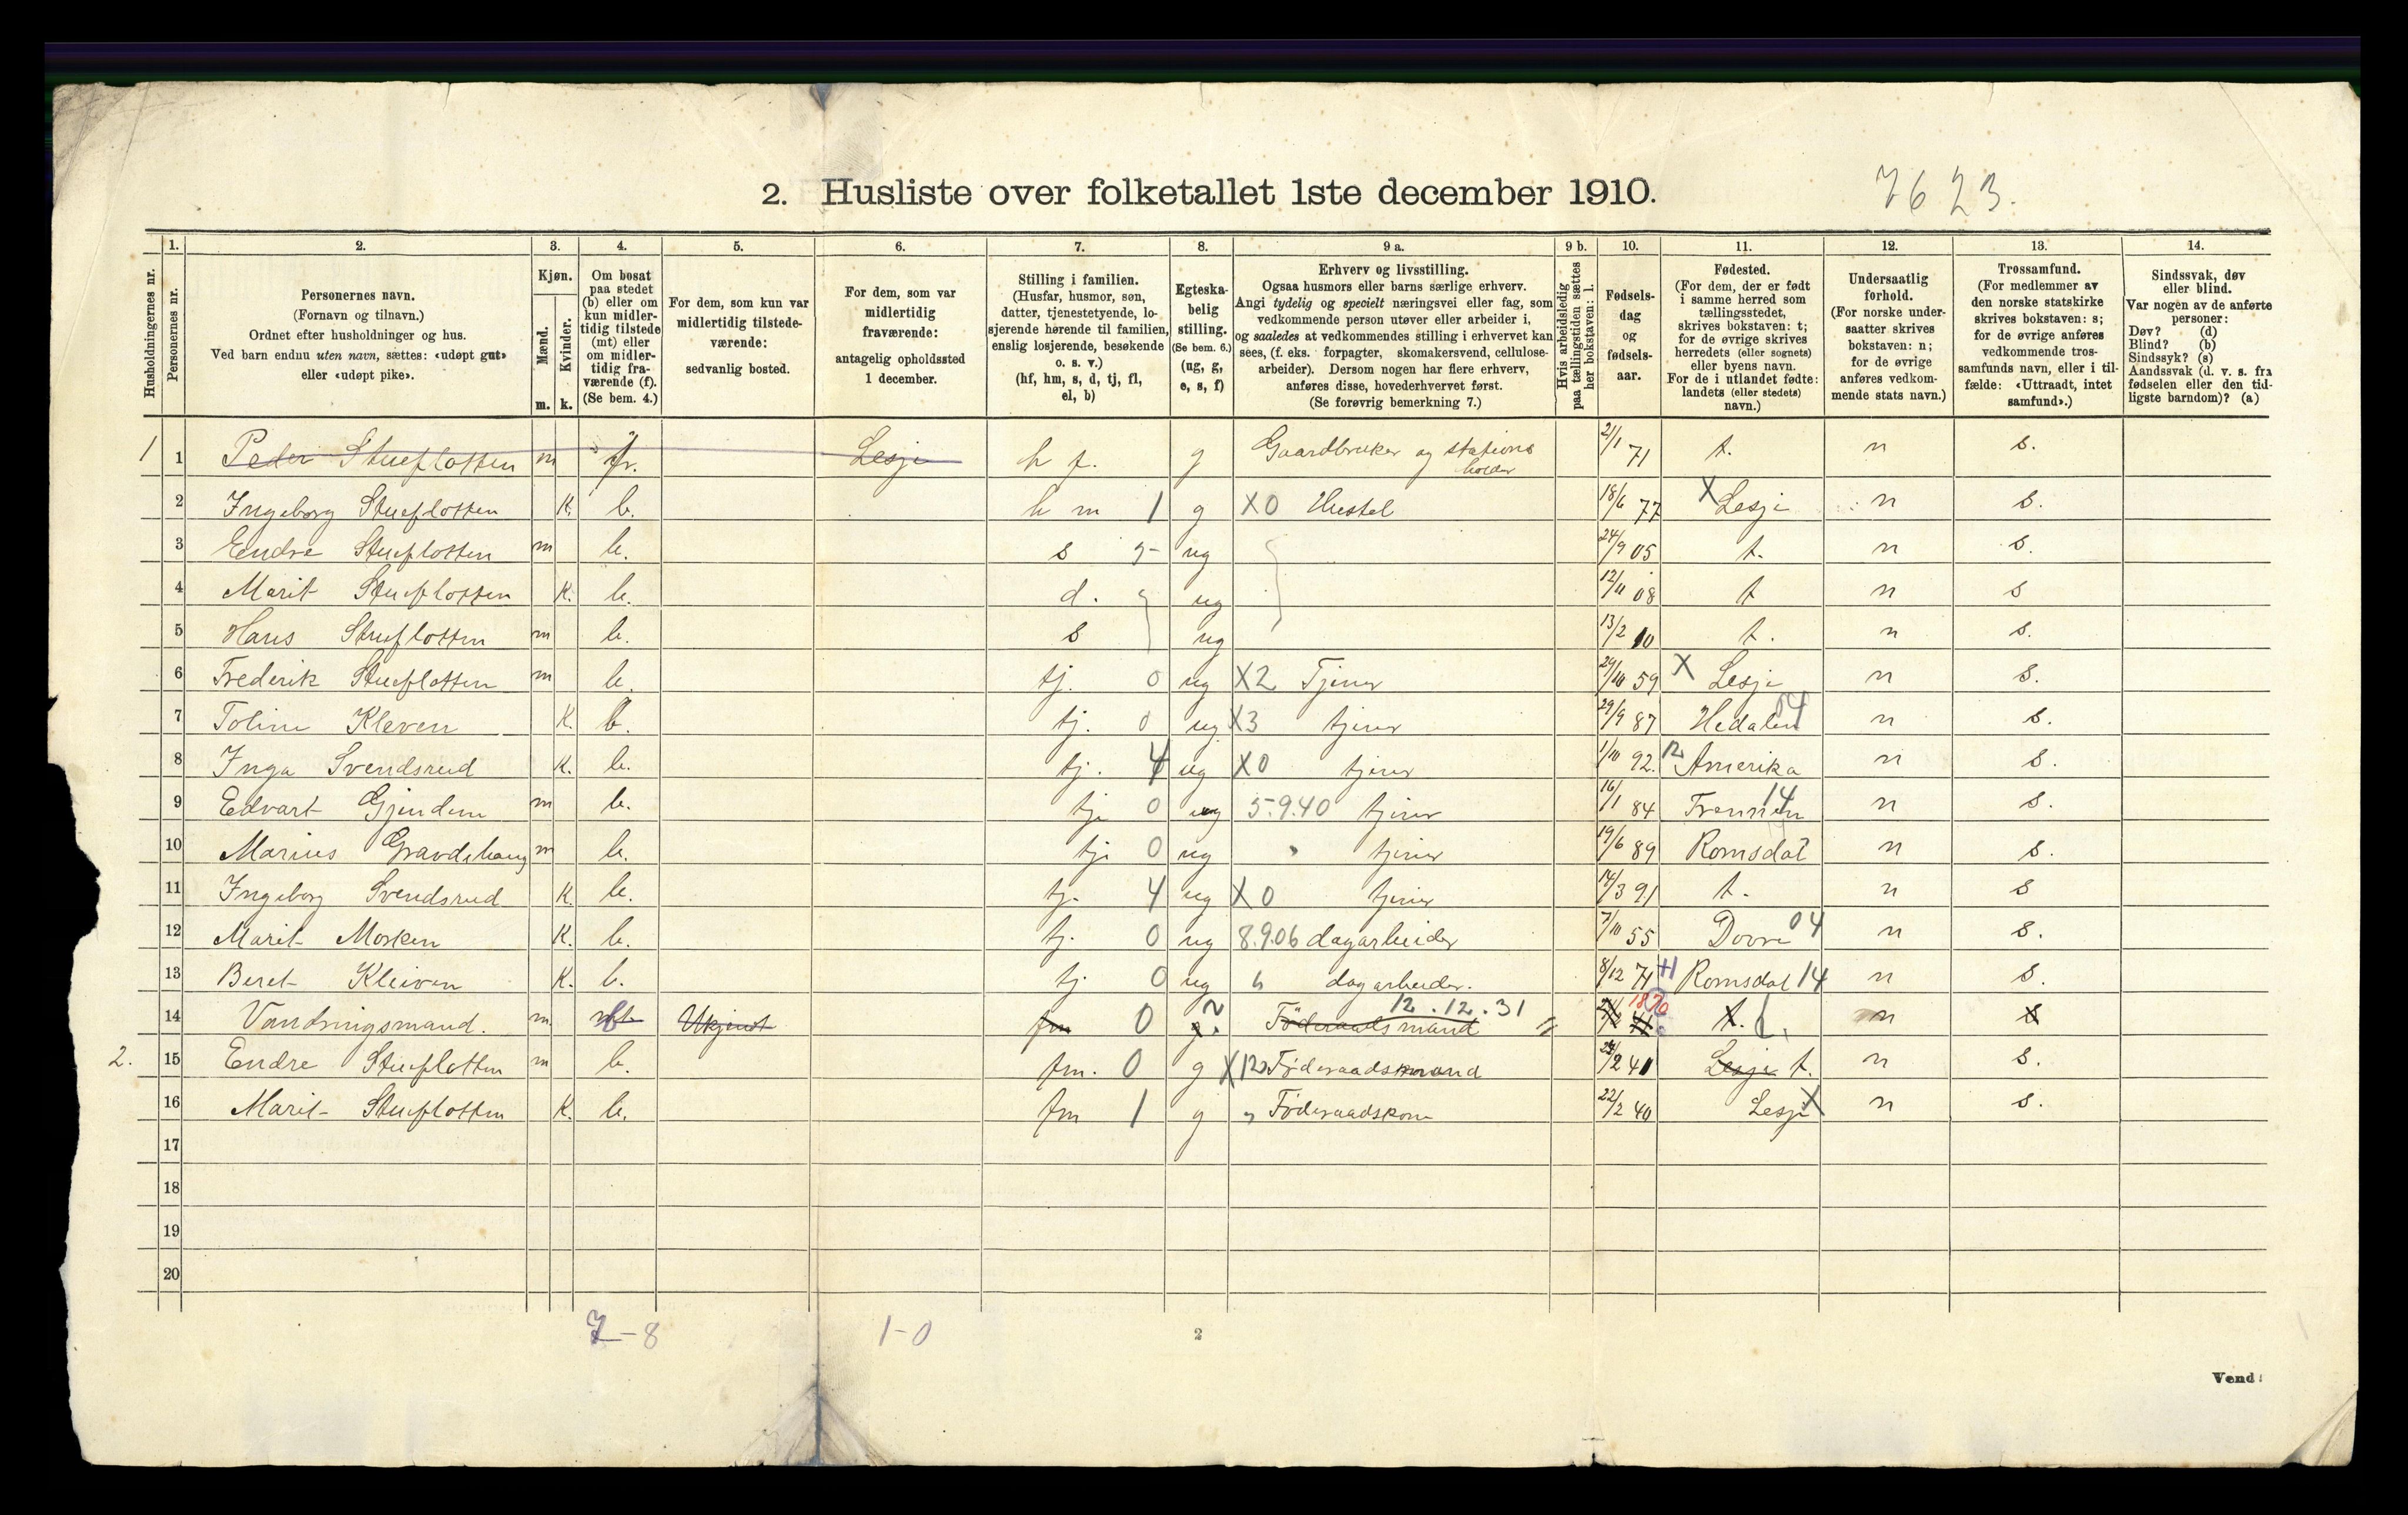 2. Husliste over folketallet 1ste december 1910.
7623.
Husholdningernes nr.
1.
Personernes nr.
2.
Personernes navn.
(Fornavn og tilnavn.)
Ordnet efter husholdninger og hus.
Ved barn endnu uten navn, sættes: «udøpt gut»
eller «udøpt pike».
3.
Kjøn.
Mænd.
Kvinder.
m. k.
4.
Om bosat
paa stedet
(b) eller om
kun midler-
tidig tilstede
(mt) eller
om midler-
tidig fra-
værende (f).
(Se bem. 4.)
5.
For dem, som kun var
midlertidig tilstede-
værende:
sedvanlig bosted.
6.
For dem, som var
midlertidig
fraværende:
antagelig opholdssted
1 december.
7.
Stilling i familien.
(Husfar, husmor, søn,
datter, tjenestetyende, lo-
sjerende hørende til familien,
enslig losjerende, besøkende
o. s. v.)
(hf, hm, s, d, tj, fl,
el, b)
8.
Egteska-
belig
stilling.
(Se bem. 6.)
(ug, g,
e, s, f)
9 a.
Erhverv og livsstilling.
Ogsaa husmors eller barns særlige erhverv.
Angi tydelig og specielt næringsvei eller fag, som
vedkommende person utøver eller arbeider i,
og saaledes at vedkommendes stilling i erhvervet kan
sees, (f. eks. forpagter, skomakersvend, cellulose-
arbeider). Dersom nogen har flere erhverv,
anføres disse, hovederhvervet først.
(Se forøvrig bemerkning 7.)
9 b.
Hvis arbeidsledig
paa tællingstiden sættes
her bokstaven: l.
10.
Fødsels-
dag
og
fødsels-
aar.
11.
Fødested.
(For dem, der er født
i samme herred som
tællingsstedet,
skrives bokstaven: t;
for de øvrige skrives
herredets (eller sognets)
eller byens navn.
For de i utlandet fødte:
landets (eller stedets)
navn.)
12.
Undersaatlig
forhold.
(For norske under-
saatter skrives
bokstaven: n;
for de øvrige
anføres vedkom-
mende stats navn.)
13.
Trossamfund.
(For medlemmer av
den norske statskirke
skrives bokstaven: s;
for de øvrige anføres
vedkommende tros-
samfunds navn, eller i til-
fælde: «Uttraadt, intet
samfund».)
14.
Sindssvak, døv
eller blind.
Var nogen av de anførte
personer:
Døv? (d)
Blind? (b)
Sindssyk? (s)
Aandssvak (d. v. s. fra
fødselen eller den tid-
ligste barndom)? (a)
1 1 Peder Stueflotten m fr. Lesje h f. g Gaardbruker og stations
holder 21/1 71 t. n s.
2 Ingeborg Stueflotten K. b. h m 1 g X0 Hustel 18/6 77 X Lesje n s.
3 Endre Stueflotten m b. s ug 24/9 05 t. n s.
4 Marit Stueflotten K. b. d. ug 12/11 08 t n s
5 Hans Stueflotten m b. s ug 13/2 10 t. n s.
6 Frederik Stueflotten m b. tj. 0 ug X2 Tjener 29/10 59 X Lesje n s.
7 Toline Kleven K. b. tj. 0 ug X3 tjener 29/9 87 Hedalen 04 n s.
8 Inga Svendsrud K. b. tj. 4 ug X0 tjener 1/10 92. 12 Amerika n s.
9 Edvart Gjendem m b. tj. 0 ug 5.9.40 tjener 16/1 84 14 n s.
10 Marius Gravdehaug m b. tj 0 ug " tjener 19/6 89 Romsdal n s.
11 Ingeborg Svendsrud K. b. tj. 4 ug X0 tjener 14/3 91 t. n s
12 Marit Morken K. b. tj. 0 ug 8.9.06 dagarbeider 7/10 55 Dovre 04 n s.
13 Beret Kleiven K. b. tj 0 ug " dagarbeider. 8/12 71 Romsdal 14 n s.
14 Vandringsmand. m. Ukjendt fm 0 g. Föderaadsmand 12.12.31 1870 t. n s
2. 15 Endre Stueflotten m b. fm. 0 g X12 Föderaadsmand 2/2 41 Lesje t. n s.
16 Marit Stueflotten K. b. fm 1 g " Föderaadskone 22/2 40 Lesje X n s.
17
18
19
20
7-8 1-0
2
Vend!